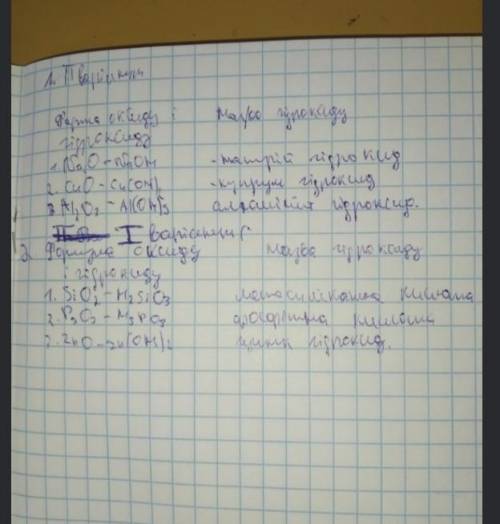 1. II варіант
Формула оксиду і назва гідроксиду
гідроксиду
1. Na₂O – NaOH - натрій гідроксид
2. CuO – Cu(OH)₂ - купрум гідроксид
3. Al₂O₃ – Al(OH)₃ алюміній гідроксид.
I варіант
2. Формула оксиду назва гідроксиду
і гідроксиду
1. SiO₂ – H₂SiO₃ метасилікатна кислота
2. – кислота
3. ZnO – Zn(OH)₂ цинк гідроксид.